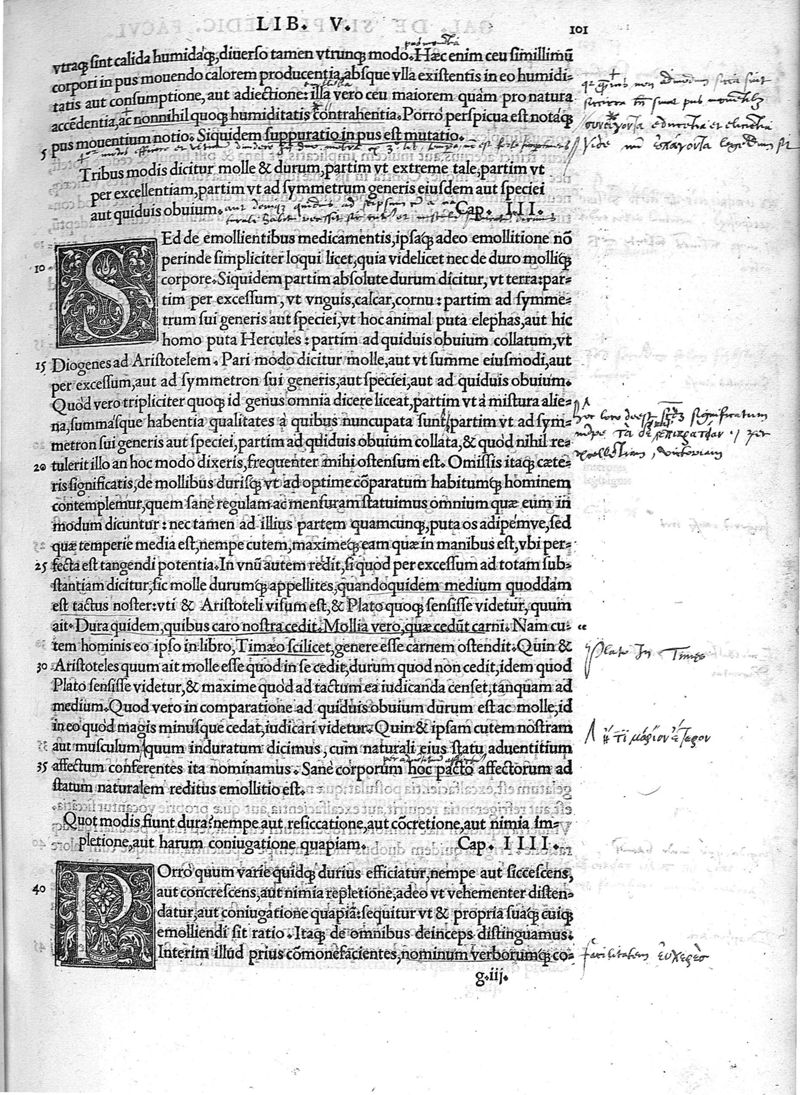 LIB. V.
101
vtraq; sint calida humidáq;, diuerso tamen vtrunq; modo. Hæc enim ceu simillimũ
corpori in pus mouendo calorem producentia, absque vlla existentis in eo humidi-
tatis aut consumptione, aut adiectione: illa vero ceu maiorem quàm pro natura
accedentia, ac nonnihil quoq; humiditatis contrahentia. Porrò perspicua est notáq;
5 pus mouentium notio. Siquidem suppuratio in pus est mutatio.
Tribus modis dicitur molle & durum, partim vt extreme tale, partim vt
per excellentiam, partim vt ad symmetrum generis eiusdem aut speciei
aut quiduis obuium. Cap. III.
SEd de emollientibus medicamentis, ipsaq; adeo emollitione nõ
10 perinde simpliciter loqui licet, quia videlicet nec de duro molliq;
corpore. Siquidem partim absolute durum dicitur, vt terra: par-
tim per excessum, vt vnguis, calcar, cornu: partim ad symme-
trum sui generis aut speciei, vt hoc animal puta elephas, aut hic
homo puta Hercules: partim ad quiduis obuium collatum, vt
15 Diogenes ad Aristotelem. Pari modo dicitur molle, aut vt summe eiusmodi, aut
per excessum, aut ad symmetron sui generis, aut speciei, aut ad quiduis obuium.
Quòd vero tripliciter quoq; id genus omnia dicere liceat, partim vt à mistura alie-
na, summasque habentia qualitates à quibus nuncupata sunt, partim vt ad sym-
metron sui generis aut speciei, partim ad quiduis obuium collata, & quòd nihil re-
20 tulerit illo an hoc modo dixeris, frequenter mihi ostensum est. Omissis itaq; cæte-
ris significatis, de mollibus durisq; vt ad optime cõparatum habitumq; hominem
contemplemur, quem sanè regulam ac mensuram statuimus omnium quæ eum in
modum dicuntur: nec tamen ad illius partem quamcunq;, puta os adipemve, sed
quæ temperie media est, nempe cutem, maximeq; eam quæ in manibus est, vbi per-
25 fecta est tangendi potentia. In vnũ autem redit, si quod per excessum ad totam sub-
stantiam dicitur, sic molle durumq; appellites, quandoquidem medium quoddam
est tactus noster: vti & Aristoteli visum est, & Plato quoq; sensisse videtur, quum
ait. Dura quidem, quibus caro nostra cedit. Mollia vero, quæ cedũt carni. Nam cu-
tem hominis eo ipso in libro, Timæo scilicet, genere esse carnem ostendit. Quin &
30 Aristoteles quum ait molle esse quod in se cedit, durum quod non cedit, idem quod
Plato sensisse videtur, & maxime quòd ad tactum ea iudicanda censet, tanquam ad
medium. Quod vero in comparatione ad quiduis obuium durum est ac molle, id
in eo quòd magis minusque cedat, iudicari videtur. Quin & ipsam cutem nostram
aut musculum quum induratum dicimus, cum naturali eius statu aduentitium
35 affectum conferentes ita nominamus. Sanè corporum hoc pacto affectorum ad
statum naturalem reditus emollitio est.
Quot modis fiunt dura? nempe aut resiccatione, aut cõcretione, aut nimia im-
pletione, aut harum coniugatione quapiam. Cap. IIII.
POrrò quum varie quidq; durius efficiatur, nempe aut siccescens,
40 aut concrescens, aut nimia repletione, adeo vt vehementer disten-
datur, aut coniugatione quapiã: sequitur vt & propria suaq; cuiq;
emolliendi sit ratio. Itaq; de omnibus deinceps distinguamus.
Interim illud prius cõmonefacientes, nominum verborumq; co-
g.iij.
Plato In Timeo
facilitatem